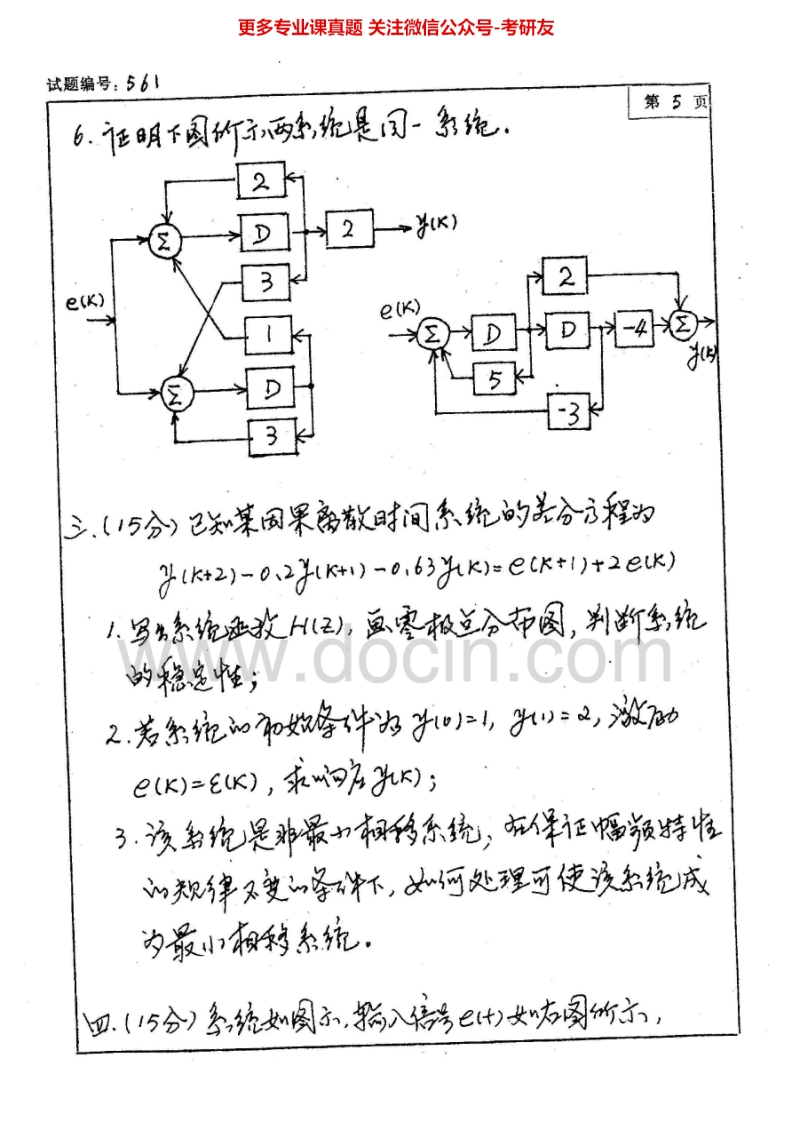 更多专业课真题 关注微信公众号-考研友
试题编号: 561
第 5 页
6. 证明下图所示两系统是同一系统.
2
Σ
D
2
y(K)
3
e(K)
1
Σ
D
3
e(K)
Σ
D
2
D
-4
Σ
y(K)
5
-3
三.(15分)已知某因果离散时间系统的差分方程为
y(K+2)-0.2y(K+1)-0.63y(K)=e(K+1)+2e(K)
1. 写出系统函数H(Z), 画零极点分布图, 判断系统
的稳定性;
2. 若系统的初始条件为 y(0)=1, y(1)=2, 激励
e(K)=ε(K), 求响应y(K);
3. 该系统是非最小相移系统, 在保证幅频特性
的规律不变的条件下, 如何处理可使该系统成
为最小相移系统。
四.(15分)系统如图示, 输入信号e(t)如右图所示,
www.docin.com